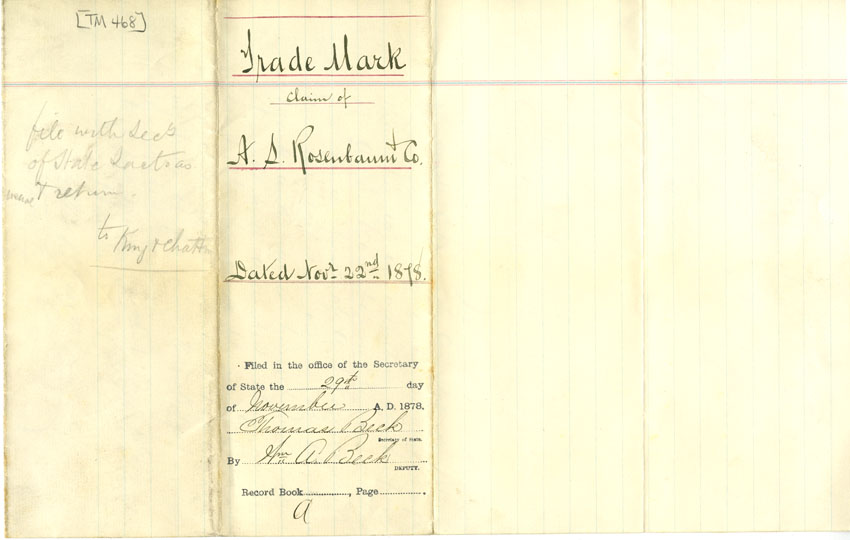 [TM 468]
file with Sec'y
of State
& return.
to King &
Trade Mark
Claim of
A. S. Rosenbaum & Co.
Dated Novr 22nd 1878.
Filed in the office of the Secretary
of State the 29th day
of November A. D. 1878,
Thomas Beck
Secretary of State.
By Wm A Beck
DEPUTY.
Record Book , Page .
A